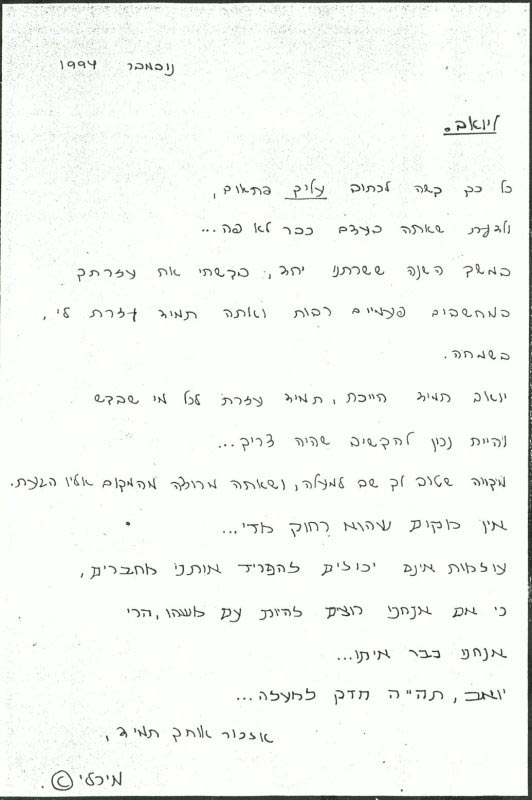 נובמבר 1994
ליואב.
כל כך קשה לכתוב עליך פתאום,
ולדעת שאתה בעצם כבר לא פה...
במשך השנה ששרתנו יחד, בקשתי את עזרתך
במחשבים פעמיים רבות ואתה תמיד עזרת לי,
בשמחה.
יואב תמיד חייכת, תמיד עזרת לכל מי שבקש
והיית נכון להקשיב שהיה צריך...
מקווה שטוב לך שם למעלה, ושאתה מרוצה מהמקום אליו הגעת.
אין מקום שהוא רחוק מדי...
עולמות אינם יכולים להפריד אותנו מחברים,
כי אם אנחנו רוצים להיות עם משהו, הרי
אנחנו כבר איתו...
יואב, תהיה חזק למעלה...
אזכור אותך תמיד,
מירלי